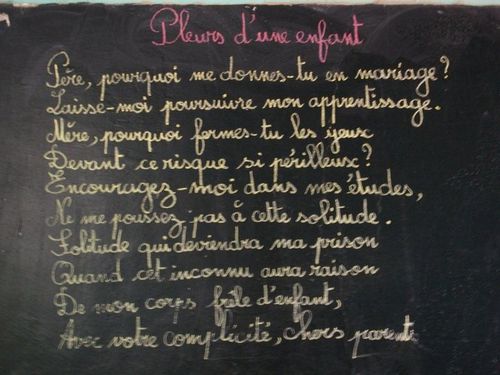 Pleurs d'une enfant
Père, pourquoi me donnes-tu en mariage?
Laisse-moi poursuivre mon apprentissage.
Mère, pourquoi fermes-tu les yeux
Devant ce risque si périlleux?
Encouragez-moi dans mes études,
Ne me poussez pas à cette solitude.
Solitude qui deviendra ma prison
Quand cet inconnu aura raison
De mon corps frêle d'enfant,
Avec votre complicité, chers parents